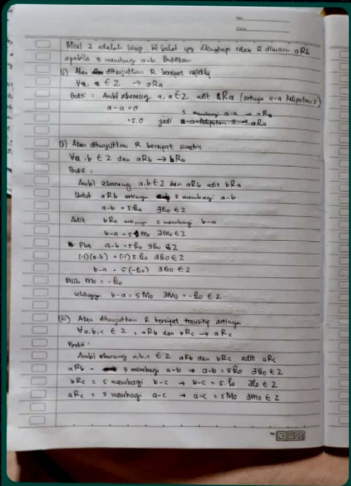 No.
Date.
Misal Z adalah himp. bil bulat yg dilengkapi relasi R dimana aRb
apabila 5 membagi a-b. Buktikan
(i) Akan ditunjukkan R bersifat refleksi
∀a, a ∈ Z → aRa
Bukti : Ambil sebarang a, a ∈ Z adit aRa (artinya a-a kelipatan 5)
a-a = 0
= 5.0 jadi
(ii) Akan ditunjukkan R bersifat simetri
∀a, b ∈ Z dan aRb → bRa
Bukti :
Ambil sebarang a,b ∈ Z dan aRb adit bRa
aRb artinya 5 membagi a-b
a-b = 5k₀ ∃k₀ ∈ Z
Adit bRa artinya 5 membagi b-a
b-a = 5m₀ ∃m₀ ∈ Z
a-b = 5k₀ ∃k₀ ∈ Z
(-1)(a-b) = (-1)5k₀ ∃k₀ ∈ Z
b-a = 5(-k₀) ∃k₀ ∈ Z
m₀ = -k₀
sehingga b-a = 5m₀ ∃m₀ = -k₀ ∈ Z
(iii) Akan ditunjukkan R bersifat transitif artinya
∀a,b,c ∈ Z, aRb dan bRc → aRc
Bukti :
Ambil sebarang a,b,c ∈ Z aRb dan bRc adit aRc
aRb = 5 membagi a-b → a-b = 5k₀ ∃k₀ ∈ Z
bRc = 5 membagi b-c → b-c = 5l₀ ∃l₀ ∈ Z
aRc = 5 membagi a-c → a-c = 5m₀ ∃m₀ ∈ Z